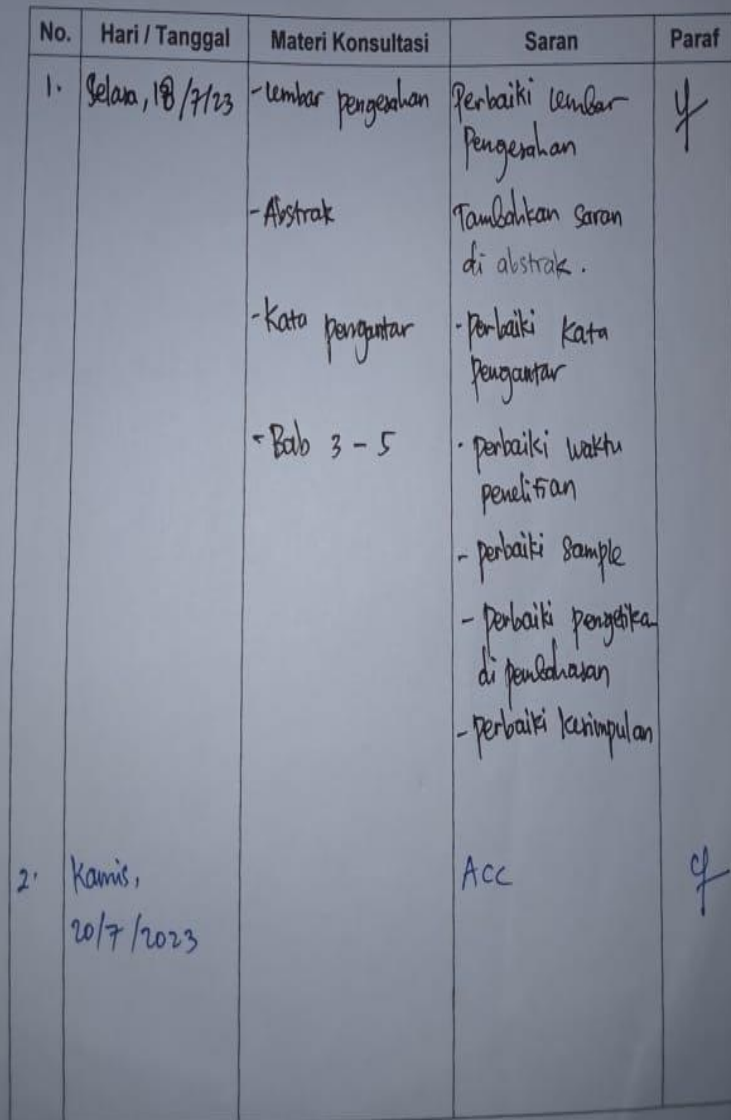 No. Hari / Tanggal Materi Konsultasi Saran Paraf
1. Selasa, 18/7/23 - Lembar pengesahan Perbaiki Lembar
Pengesahan
- Abstrak Tambahkan Saran
di abstrak.
- Kata pengantar - perbaiki Kata
Pengantar
- Bab 3 - 5 - perbaiki waktu
penelitian
- perbaiki Sample
- perbaiki pengetika
di pembahasan
- perbaiki kesimpulan
2. Kamis, ACC
20/7/2023